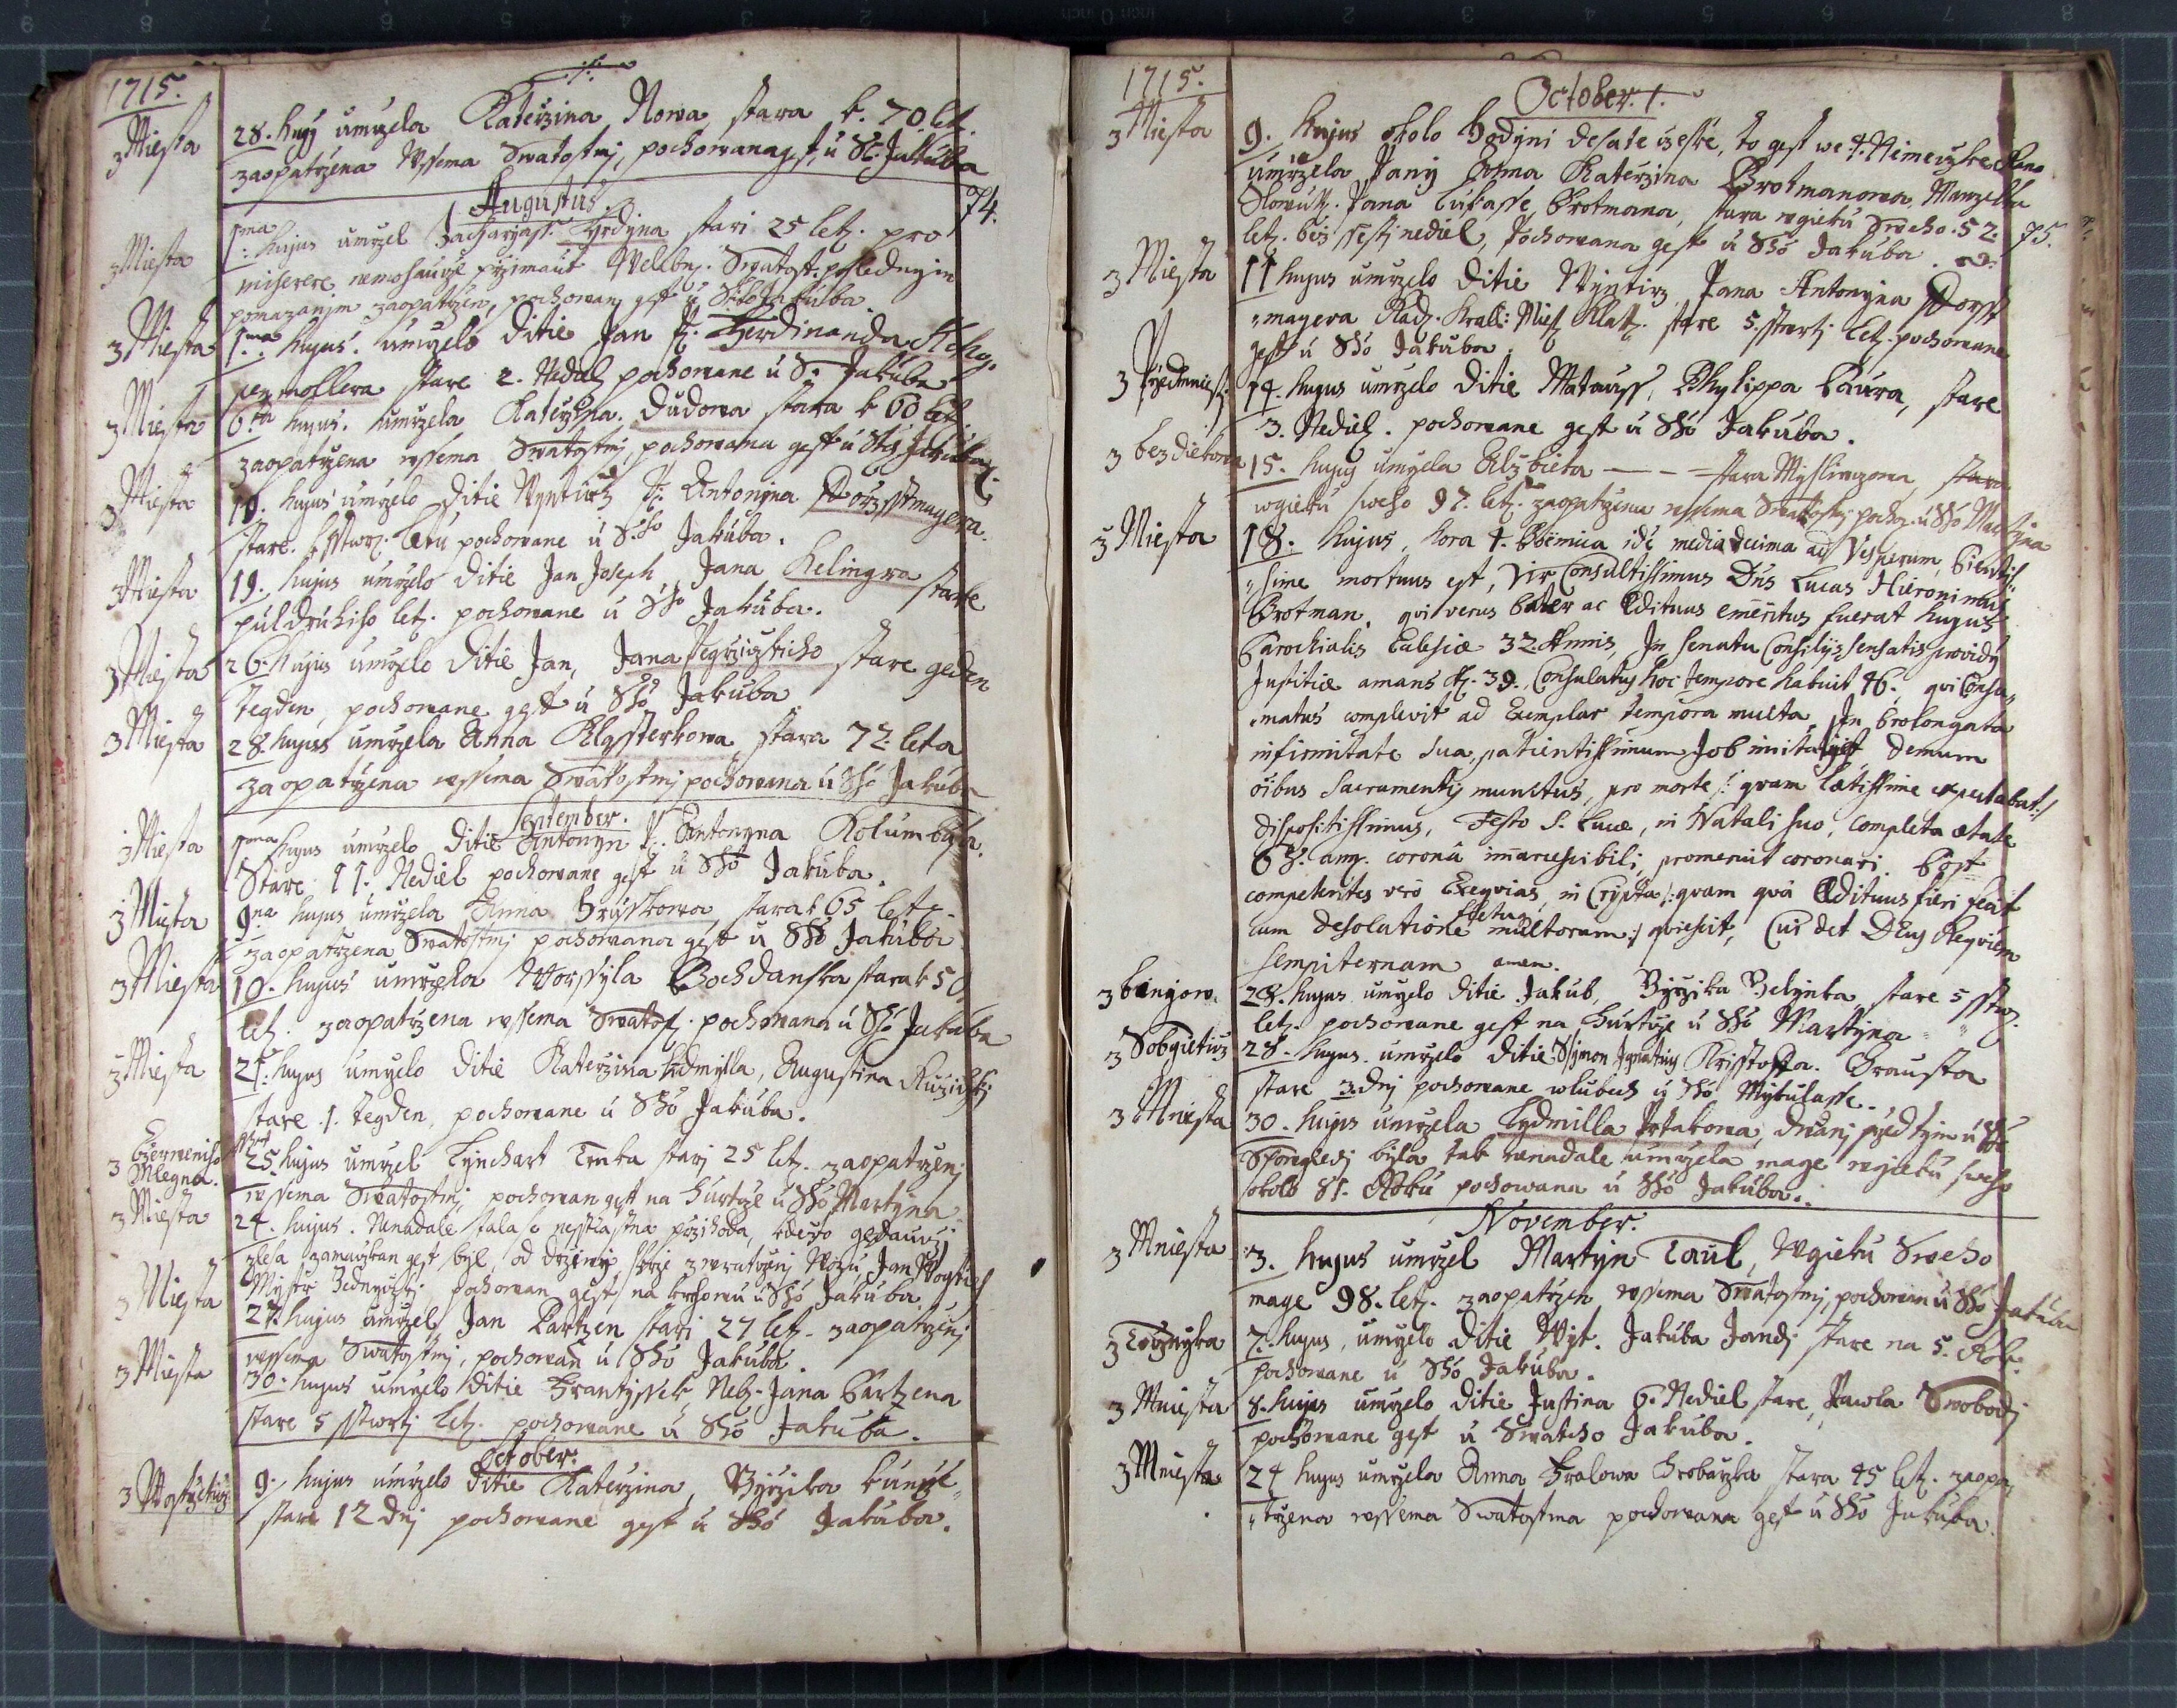 1715.
z Miesta
28. hujus umrzela Katerzina Nowa stara k. 70 let.
zaopatrzena wssema Swatostmj, pochowana gest, u S: Jakuba
74.
Augustus.
z Miesta
1ma: hujus umrzel stari 25 let. pro
miserere nemohauce prziimaut Welebn. Swatost. poslednyim
pomazanjm zaopatrzen, pochowan gest u Sho Jakuba.
z Miesta
1ma. hujus. umrzelo Ditie Jan P. Ferdinanda
stare 2. Nediel pochowane u S. Jakuba
z Miesta
6ta hujus. umrzela Katerzina. Dudowa stara k 60 let.
zaopatrzena wssema Swatostmj, pochowana gest u Sho Jakuba.
z Miesta
18. hujus umrzelo Ditie Wyntirz P. Antonyna
stare. letu pochowane u S.ho Jakuba.
z Miesta
19. hujus umrzelo Ditie Jan Joseph, Jana Helingra stare
pul druhiho let. pochowane u Sho Jakuba.
z Miesta
26. hujus umrzelo Ditie Jan, Jana stare geden
tegden, pochowane gest u Sho Jakuba
z Miesta
28. hujus umrzela Anna Klasterkowa stara 72 leta
zaopatrzena wssema Swatostmj pochowana u Sho Jakuba
September.
z Miesta
1ma hujus umrzelo Ditie Antonyn P. Antonyna
Stare 11. Nediel pochowane gest u Sho Jakuba.
z Miesta
9na hujus umrzela Anna Hruskowa stara k 65 lete
zaopatrzena Swatostmj pochowana gest u Sho Jakuba
z Miesta
10. hujus umrzela Worssyla Bochdanska stara k 50
let. zaopatrzena wssema Swatost. pochowana u Sho Jakuba
z Miesta
21. hujus umrzelo Ditie Katerzina Lidmylla, Augustina
stare .1. tegden, pochowane u Sho Jakuba.
z Czerweniho
Mlegna.
25. hujus umrzel Lynhart stary 25 let. zaopatrzeny
wssema Swatostmj, pochowan gest na hurtze u Sho Martyna
z Miesta
24. hujus. Nenadale stala se nesstiastna przihoda,
gest byl, od Jan
Mystr pochowan gest na krchowu u Sho Jakuba.
z Miesta
27. hujus umrzel Jan Partzen stari 27 let. zaopatrzeny
wssema Swatostmj, pochowan u Sho Jakuba.
z Miesta
30. hujus umrzelo Ditie Frantyssek, Neb. Jana Partzena
stare 5 sstwrtj let. pochowane u Sho Jakuba.
October.
9. hujus umrzelo Ditie Katerzina, Girzika
stare 12 dnj pochowane gest u Sho Jakuba.
1715.
October. 1.
z Miesta
9. hujus okolo hodyni desate czeske, to gest we 4. Nimeczke Rano
umrzela Pany Anna Katerzina Brotmanowa, Manzelka
Slowut. Pana Lukasse Brotmana, stara wgieku Sweho. 52.
75.
let. bez ssesti nediel, Pochowana gest u Sho Jakuba.
z Miesta
11 hujus umrzelo Ditie Wyntirz Pana Antonyna Dorst
„mayera Rad. Kral: Miest. Klat. stare 5. sstwrtj let. pochowane
gest u Sho Jakuba.
z Przedmiest:
14. hujus umrzelo Ditie Matauss, Phylippa Paura, stare
3. Nediel. pochowane gest u Sho Jakuba.
z bezdiekowa
15. hujus umrzela Elzbieta — — = stara Mysliwczowa, stara
wgieku sweho 97. let. zaopatrzena wssema Swatostmj poch. u Sho Martyna
z Miesta
18. hujus, hora 4. Boemica id e media decima ad Vesperum, Pientis„
„sime mortuus est, Vir Consultissimus Dns Lucas Hieronimus
Brotman, qvi verus Pater ac Ædituus emeritus fuerat hujus
Parochialis Eclesiæ 32. Annis, In senatu Consilijs sensatis, providus
Justitiæ amans A. 39., Consulatus hoc tempore habuit 46., qvi Consu„
„matus complevit ad Exemplar tempora multa. In Prolongata
infirmitate sua, patientissimum Job imitatus est, demum
oibus Sacramentis munitus, pro morte /: qvam lætissime expectabat :/
dispositissimus, Festo S. Lucæ, in Natali suo, completa ætate
68. ann. corona immarcescibili, promeruit coronari. Post
competentes vero Exeqvias, in Crypta /: qvam qva Ædituus fieri fecit
cum desolatione fletuq multorum :/ qviescit, Cui det DEus Reqviem
sempiternam amen.
28. hujus umrzelo Ditie Jakub, Girzika stare 5 sstwr.
let. pochowane gest na hurtze u Sho Martyna
z Sobgieticz
28. hujus umrzelo Ditie Ssymon Ignatius Krisstoffa. Brausta
stare 3. dnj pochowane wlubech u Sho Mykulasse.
z Mniesta
30. hujus umrzela Lydmilla Ptakowa, przedtym u Sho
byla tak nenadale umrzela mage wgieku sweho
okolo 81. Roku pochowana u Sho Jakuba.
November.
z Mniesta
3. hujus umrzel Martyn Taul, Wgieku Sweho
mage 98. let. zaopatrzen wssema Swatostmj, pochowan u Sho Jakuba
7. hujus, umrzelo Ditie Wyt. Jakuba Jandj stare na 5. Rok.
pochowane u Sho Jakuba.
z Mniesta
8. hujus umrzelo Ditie Justina 6. Nediel stare, Pawla Swobodj
pochowane gest u Swateho Jakuba.
z Mniesta
24 hujus umrzela Anna Kralowa Hrobarzka stara 45 let. zaopa„
„trzena wssema Swatostma pochowana gest u Sho Jakuba.